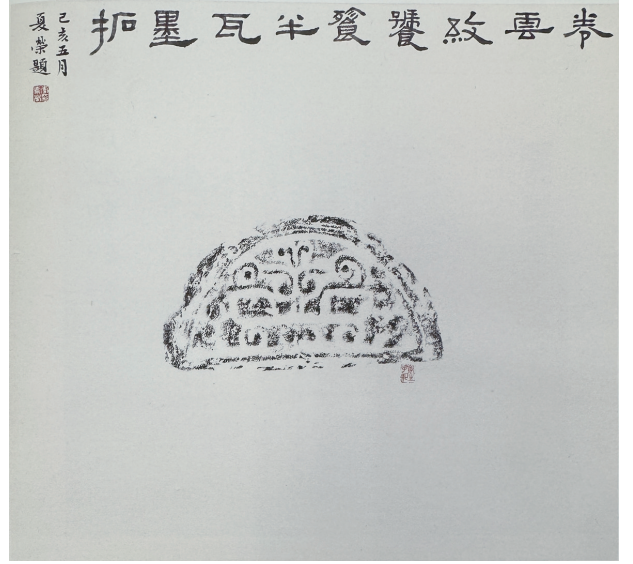 卷雲紋饕餮半瓦墨拓
己亥五月
夏榮題